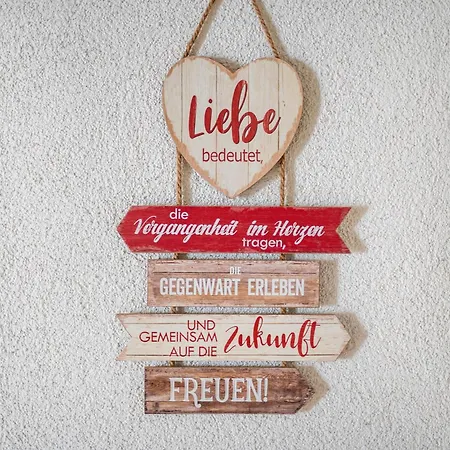 Liebe
bedeutet,
die
Vergangenheit im Herzen
tragen,
DIE
GEGENWART ERLEBEN
UND
GEMEINSAM
AUF DIE Zukunft
FREUEN!